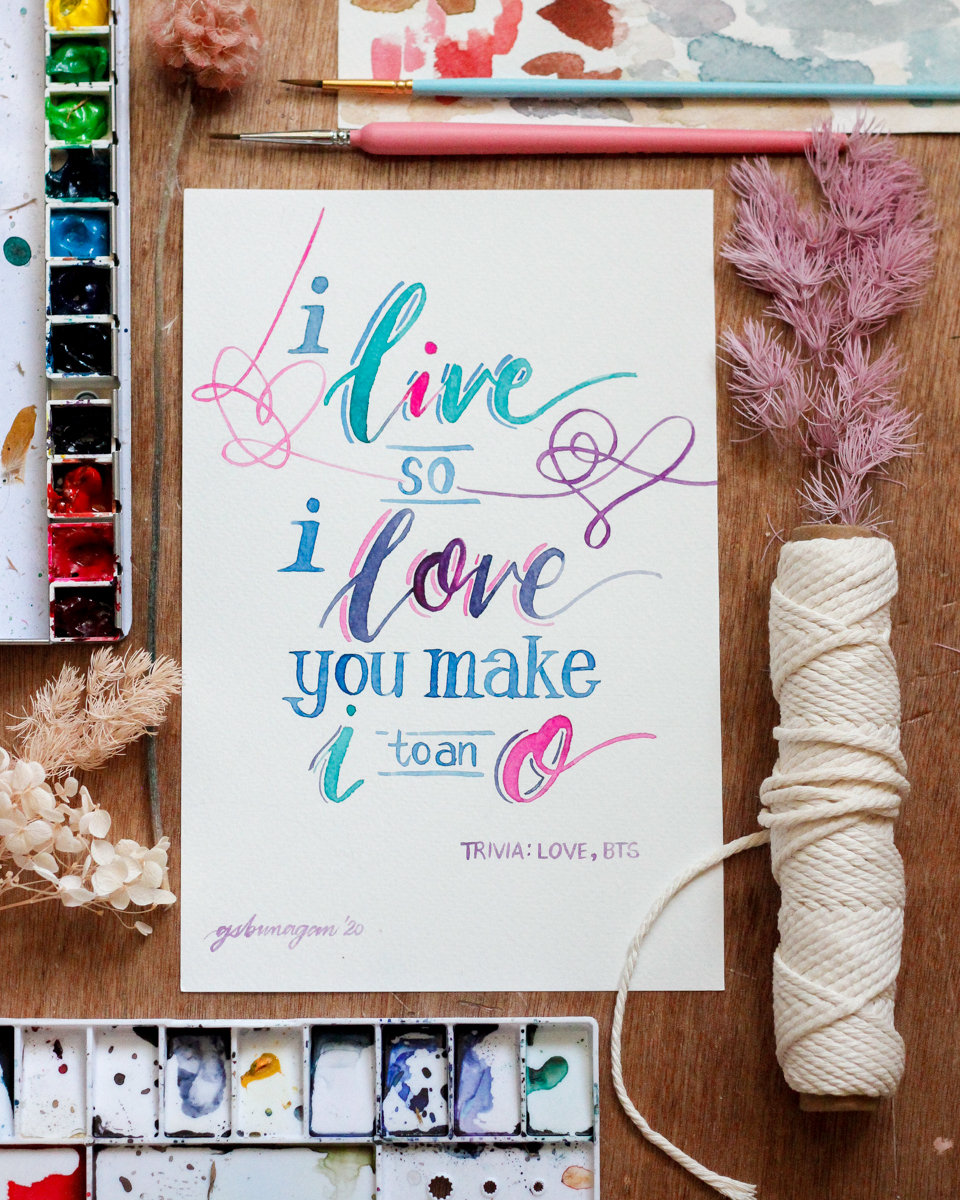 i live
so
i love
you make
i to an o
TRIVIA: LOVE, BTS
gsbunagan '20